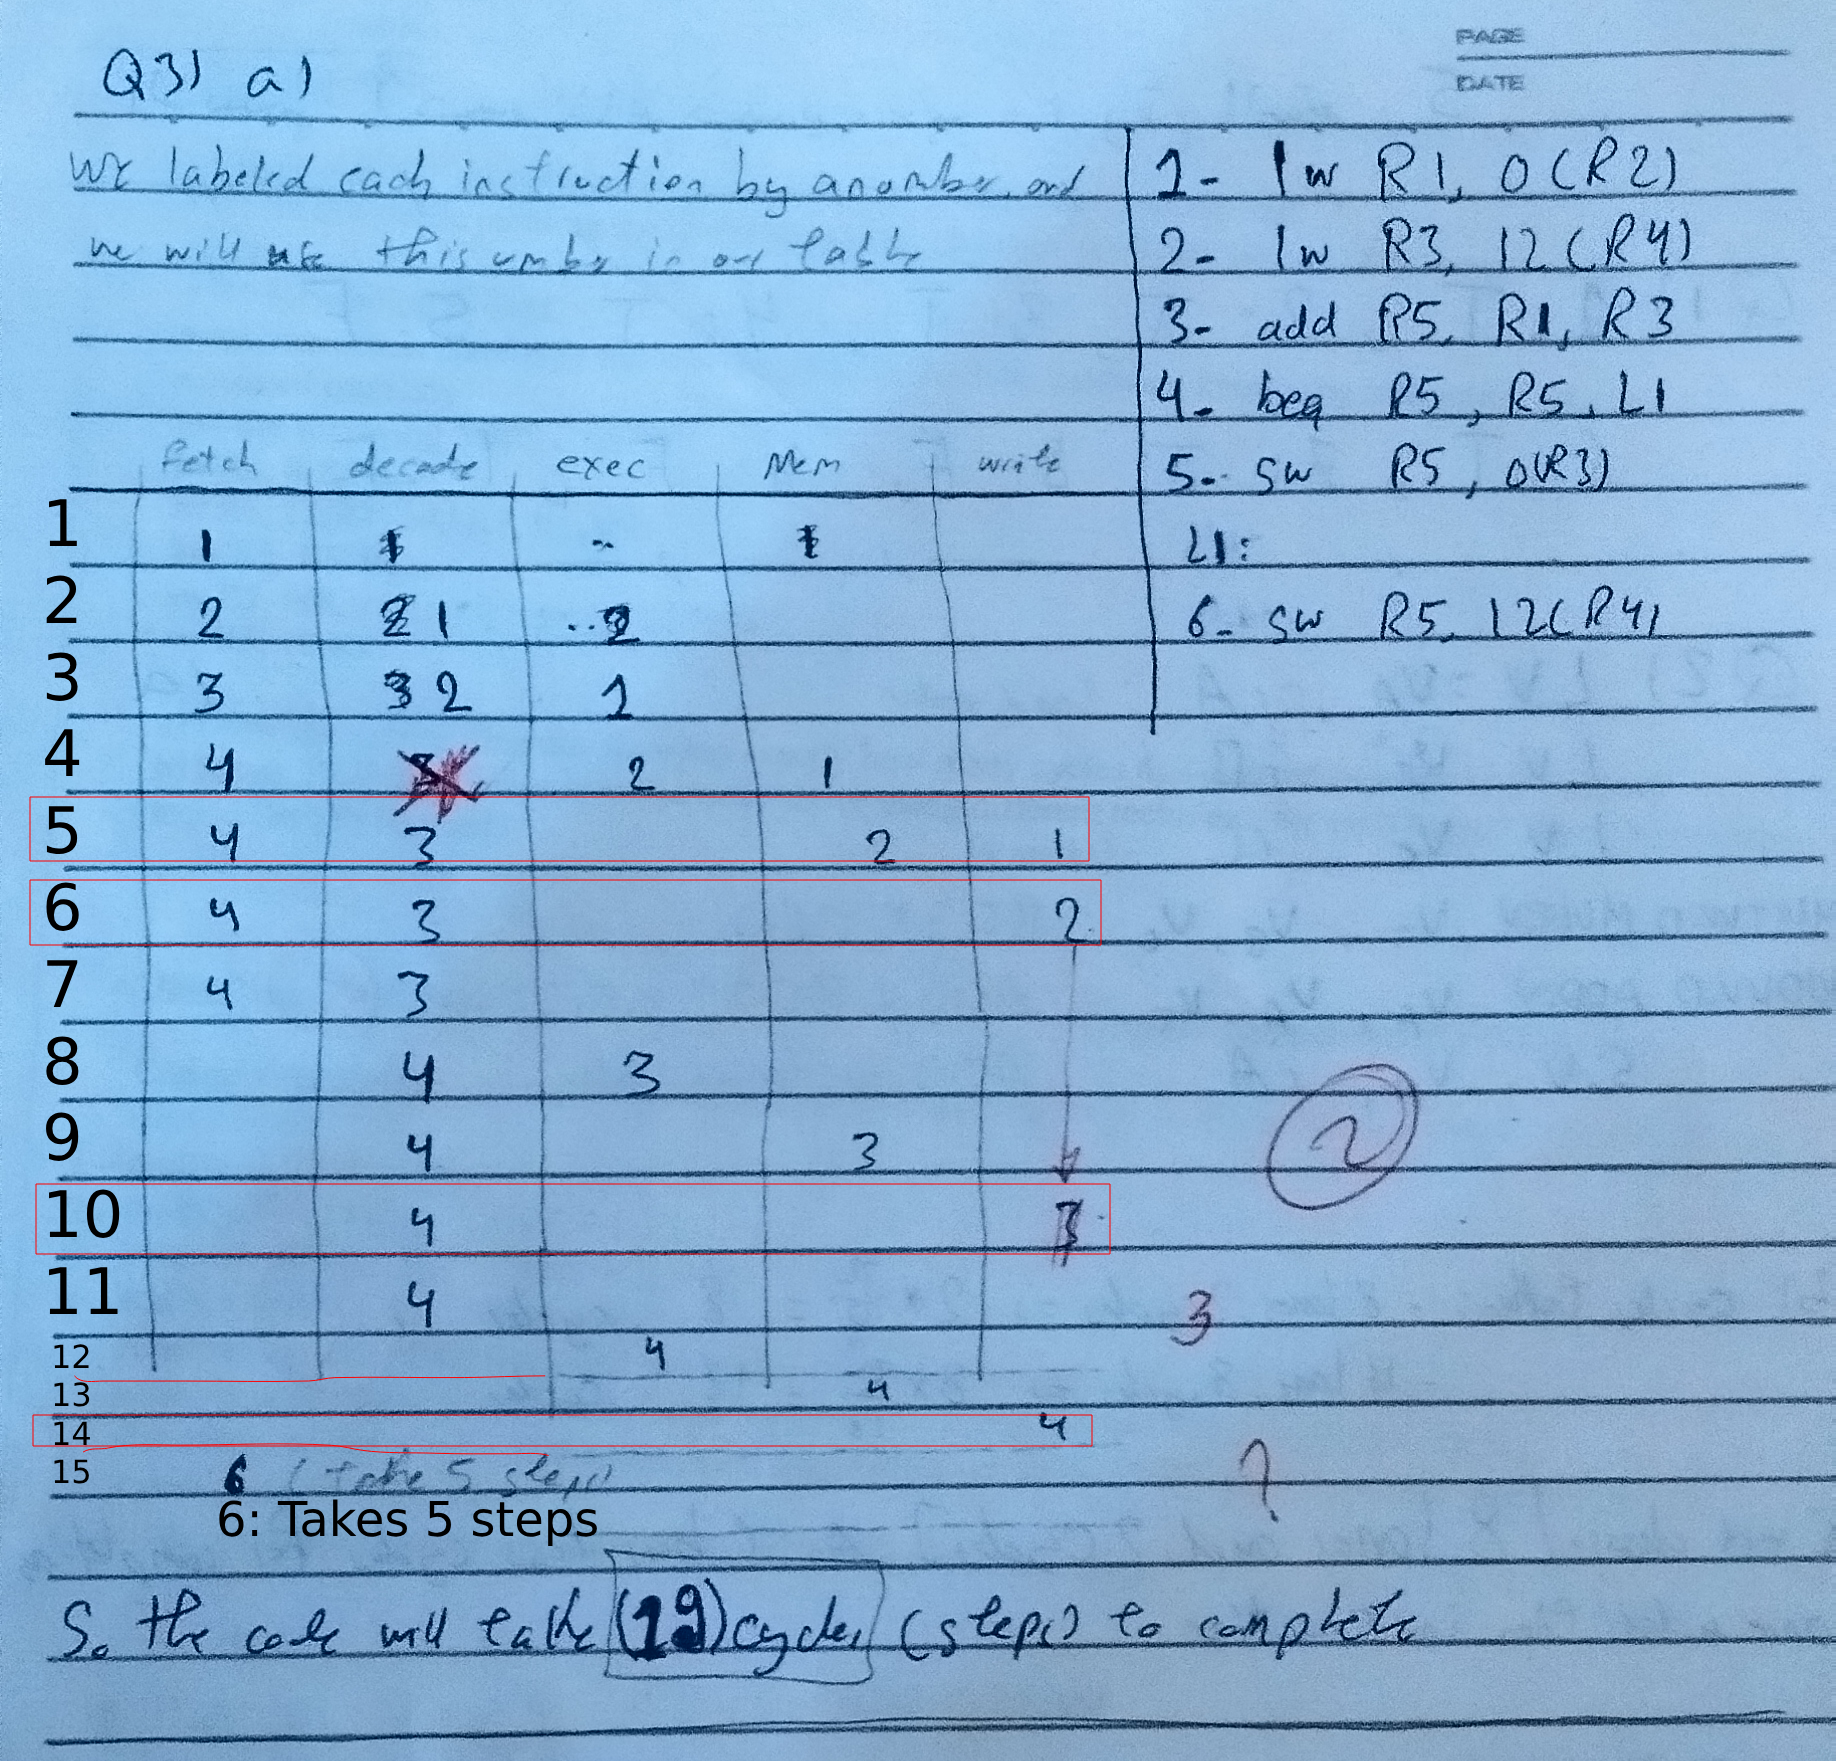 Q3) a)
PAGE
DATE
We labeled each instruction by a number, and
we will use this number in our table
1- lw R1, 0(R2)
2- lw R3, 12(R4)
3- add R5, R1, R3
4- beq R5, R5, L1
5- sw R5, 0(R3)
L1:
6- sw R5, 12(R4)
Fetch decode exec Mem write
1 1 1 - 1
2 2 1
3 3 2 1
4 4 2 1
5 4 3 2 1
6 4 3 2
7 4 3
8 4 3
9 4 3
10 4 3
11 4
12 4
13 4
14 4
15 6 (take 5 steps)
6: Takes 5 steps
2
3
?
So the code will take (19) cycles (steps) to complete